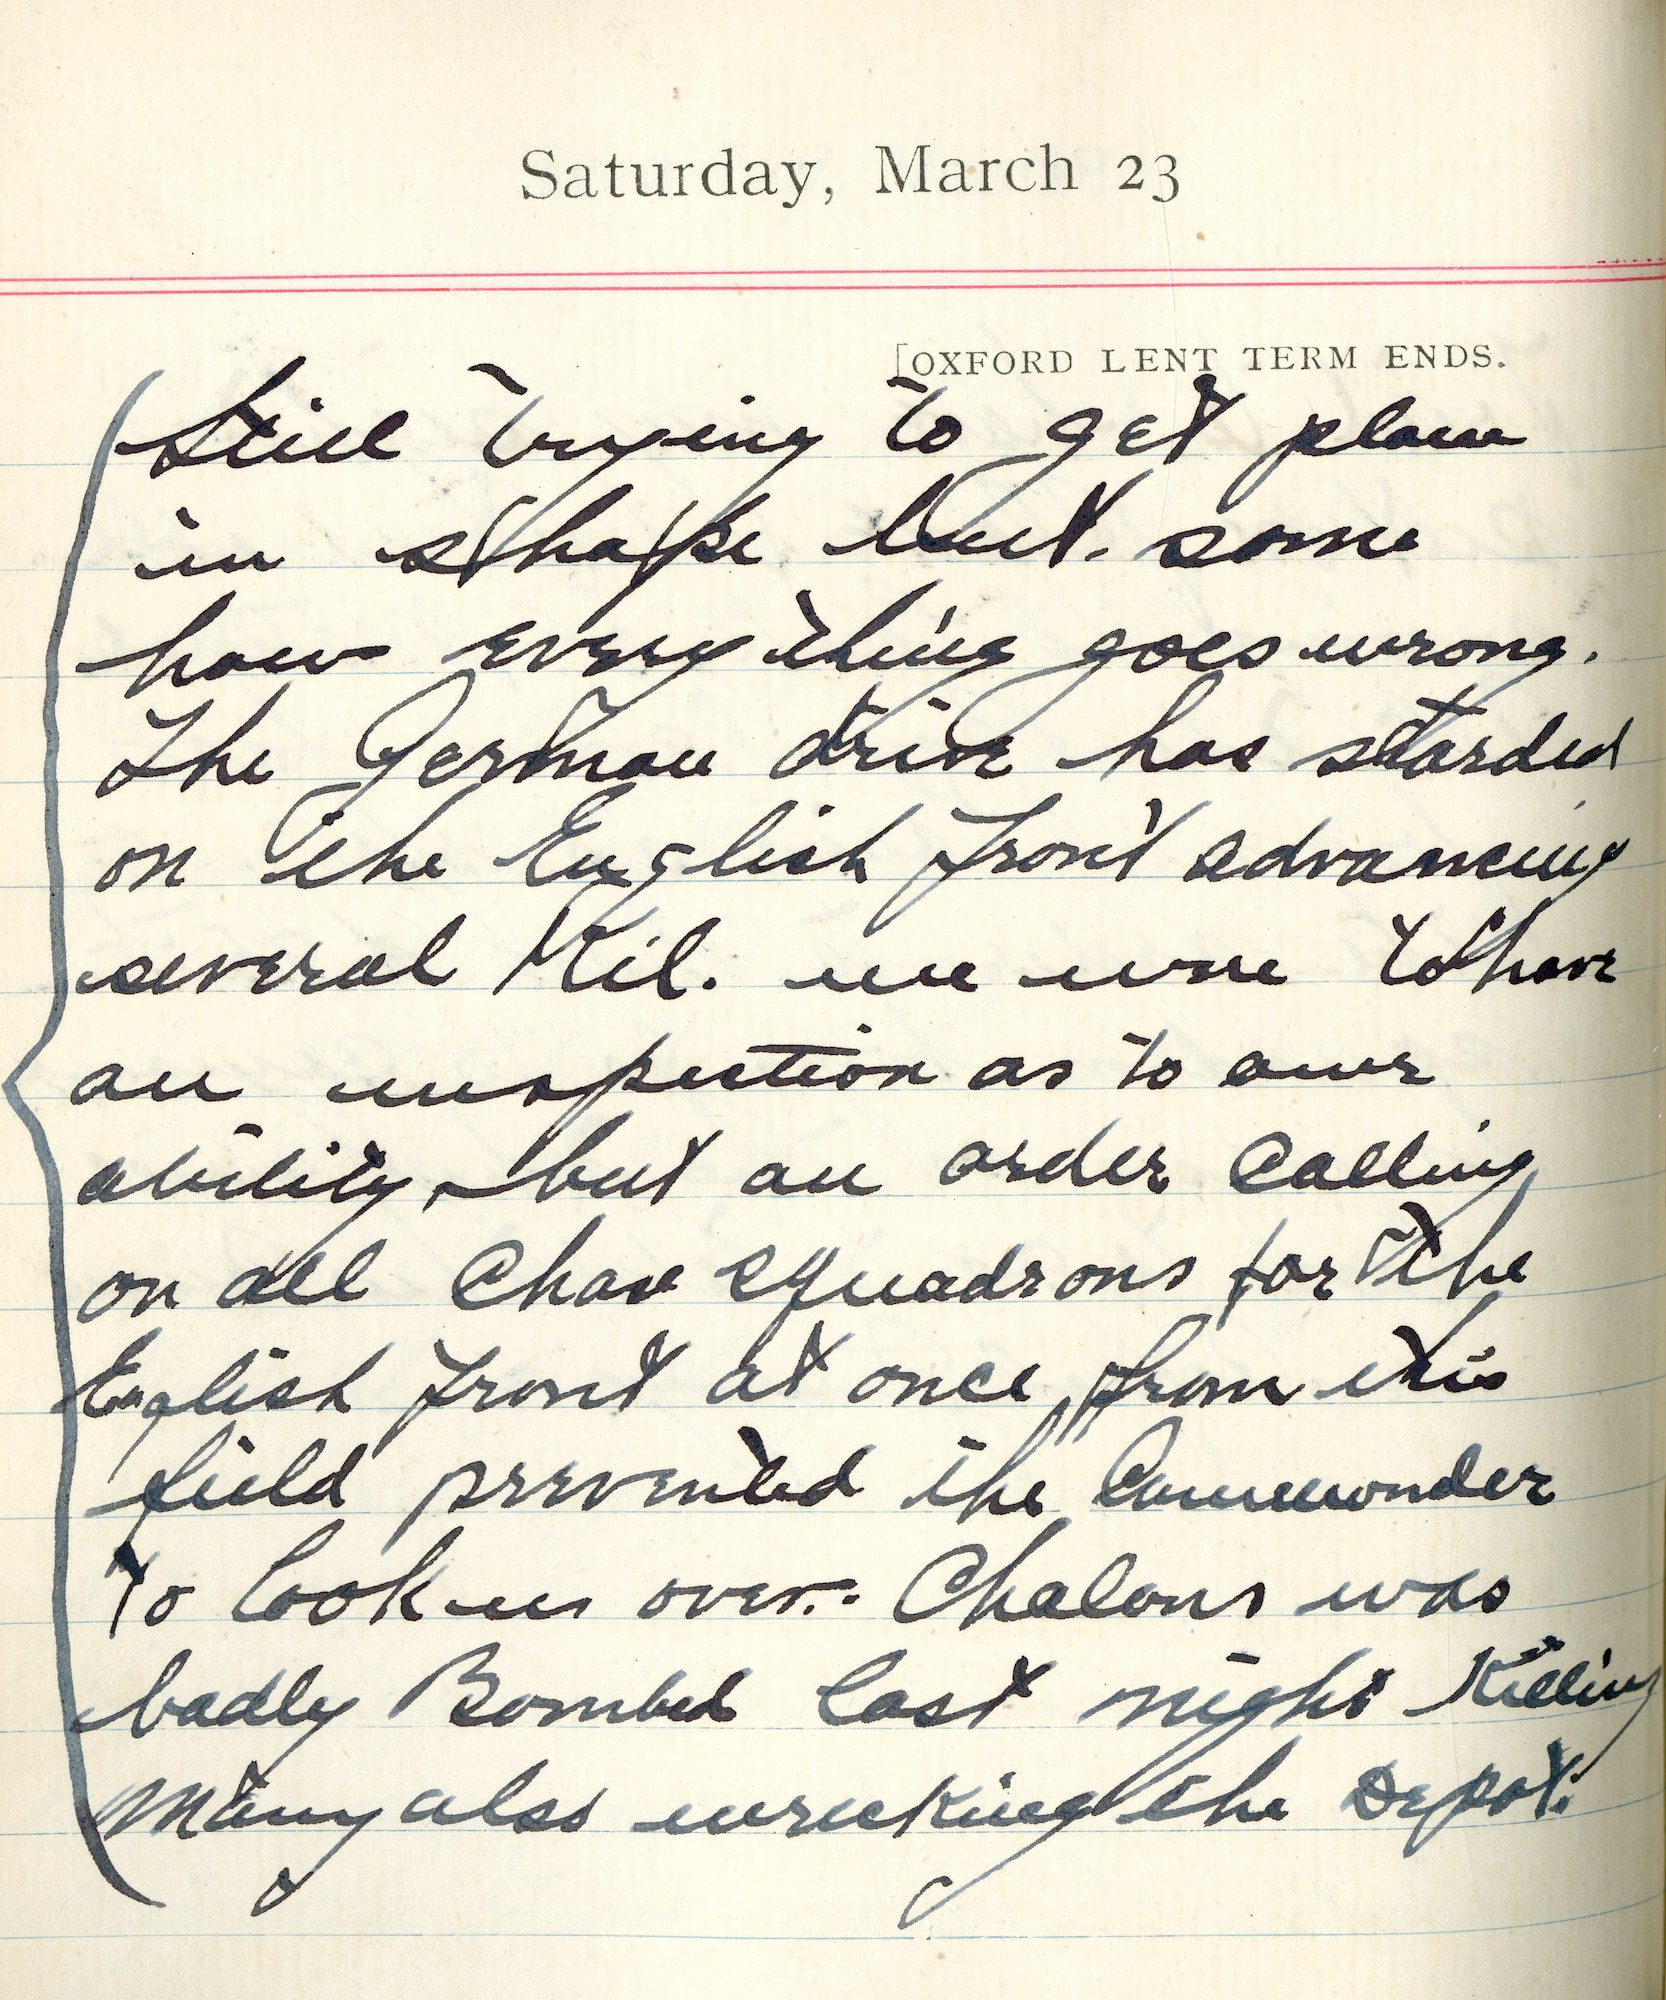 Saturday, March 23
[OXFORD LENT TERM ENDS.
Still trying to get plane
in shape but. some
how every thing goes wrong.
The German drive has started
on the English front advancing
several Kil. we were to have
an inspection as to our
ability, but an order calling
on all Chas squadrons for the
English front at once, from this
field prevented the Commander
to look us over. Chalons was
badly Bombed last night Killing
many also wrecking the Depot.